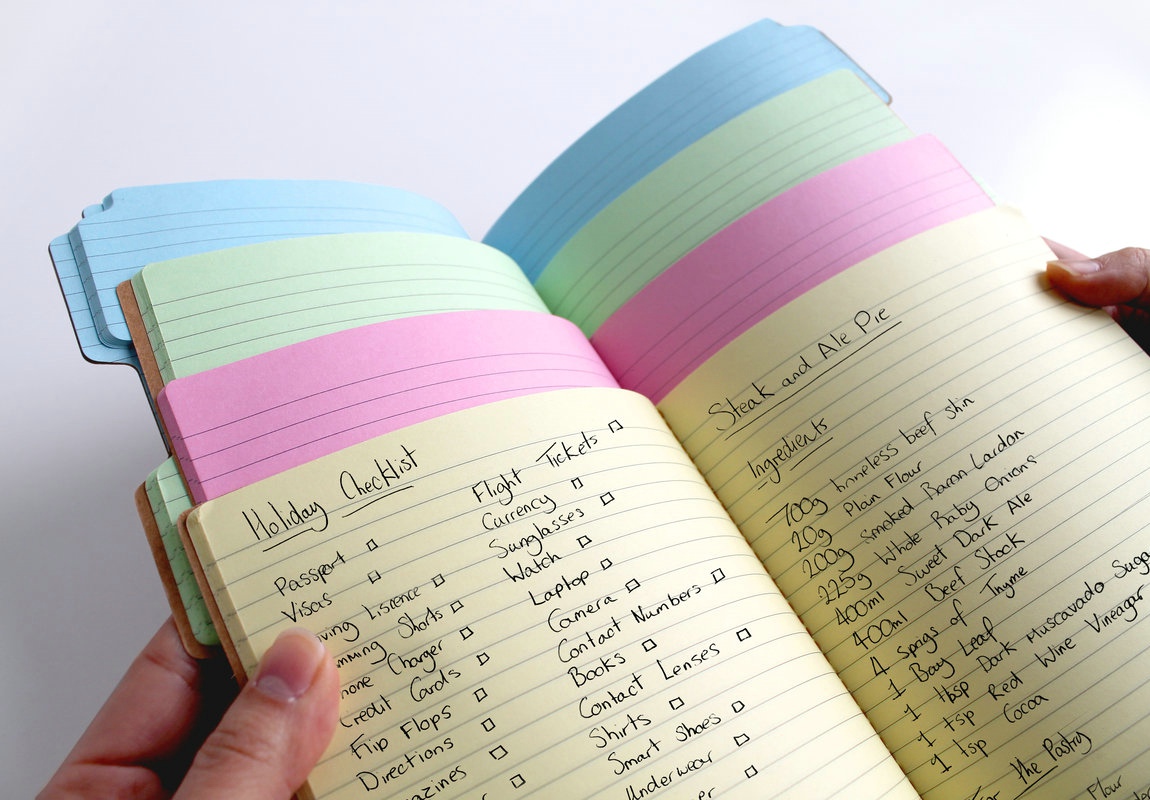 Holiday Checklist
Passport
Visas
ving Liscence
mming Shorts
hone Charger
Credit Cards
Flip Flops
Directions
azines
Flight Tickets
Currency
Sunglasses
Watch
Laptop
Camera
Contact Numbers
Books
Contact Lenses
Shirts
Smart Shoes
Underwear
Steak and Ale Pie
Ingredients
700g boneless beef shin
20g Plain Flour
200g Smoked Bacon Lardon
225g Whole Baby Onions
400ml Sweet Dark Ale
400ml Beef Stock
4 Sprigs of Thyme
1 Bay Leaf
1 tbsp Dark Muscavado Suga
1 tsp Red Wine Vinegar
1 tsp Cocoa
For the Pastry
Flour